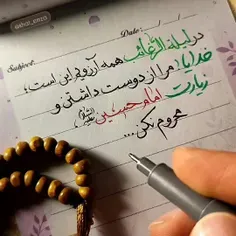 Date:
Subject:
در لیلة الرغائب همه آرزویم این است؛
خدایا! مرا از دوست داشتن و
زیارت امام حسین علیه السلام
محروم نکن...